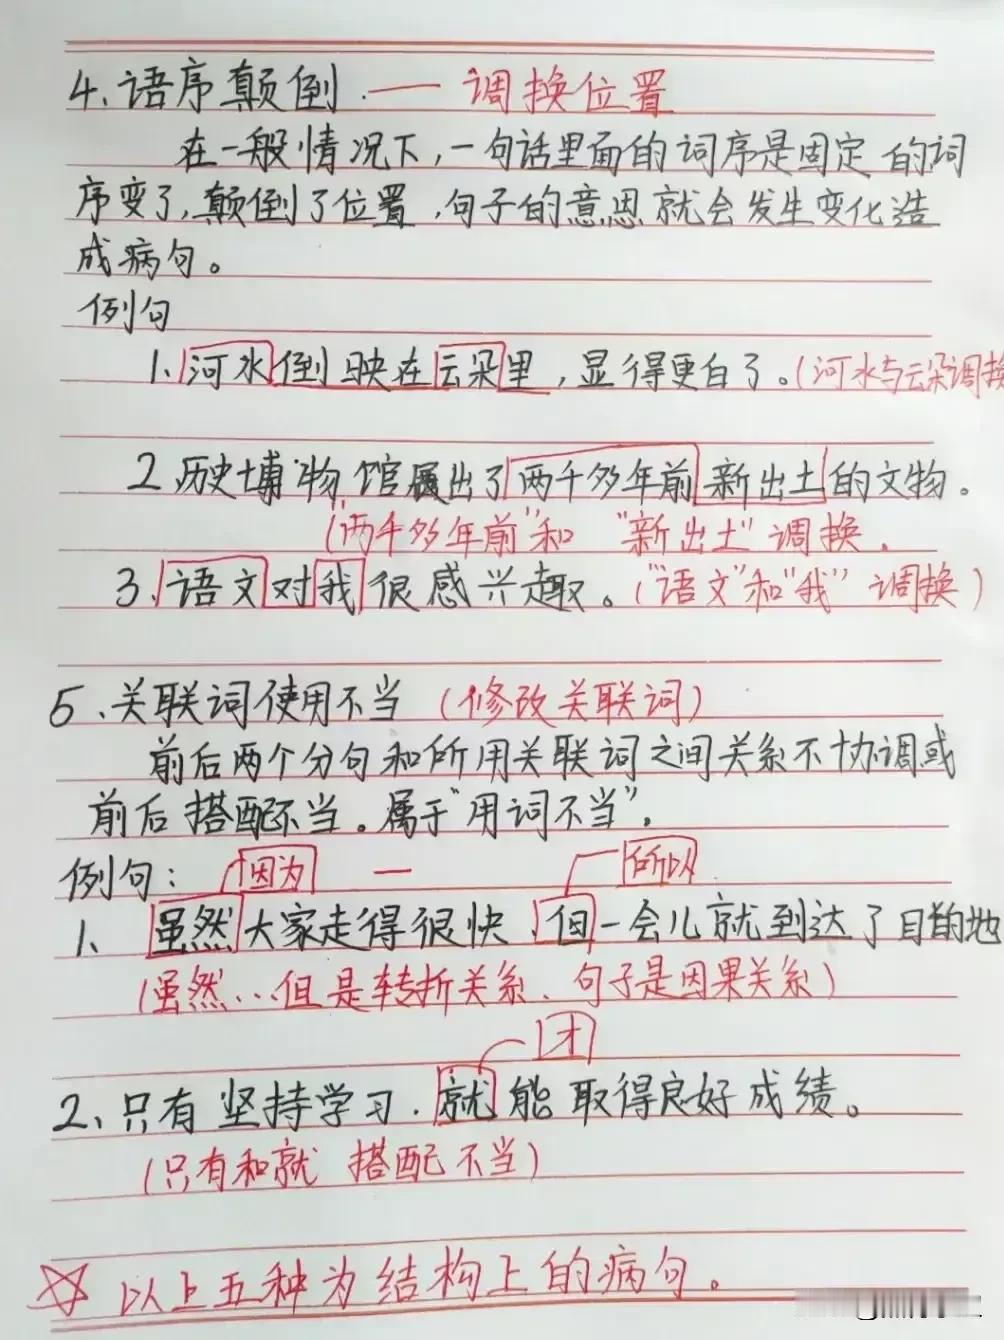 4、语序颠倒 — 调换位置
在一般情况下,一句话里面的词序是固定的词
序变了,颠倒了位置,句子的意思就会发生变化造
成病句。
例句
1、河水倒映在云朵里,显得更白了。(河水与云朵调换
2 历史博物馆展出了两千多年前新出土的文物。
("两千多年前"和 "新出土"调换.
3、语文对我很感兴趣。("语文"和"我"调换)
5、关联词使用不当 (修改关联词)
前后两个分句和所用关联词之间关系不协调或
前后搭配不当。属于"用词不当".
例句: 因为 — 所以
1、虽然大家走得很快、但一会儿就到达了目的地
(虽然...但是转折关系、句子是因果关系)
才
2、只有坚持学习.就能取得良好成绩。
(只有和就 搭配不当)
☆ 以上五种为结构上的病句。